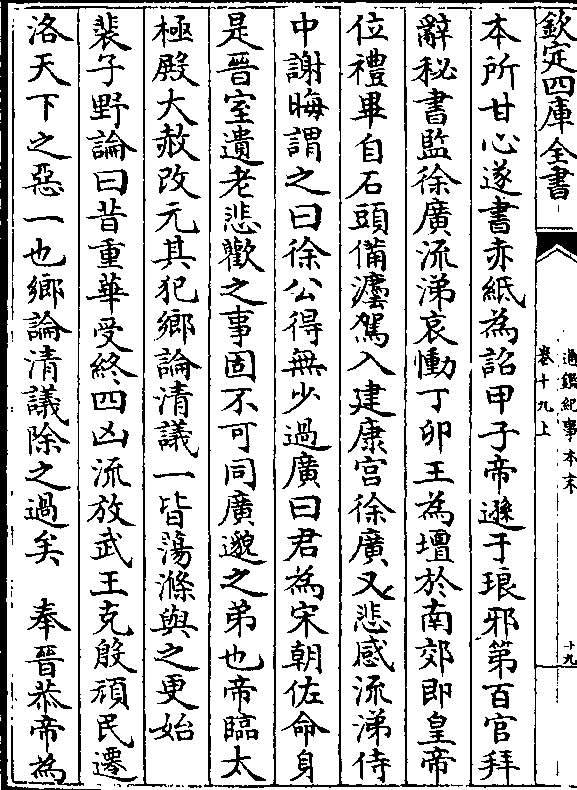 欽定四庫全書
通鑑紀事本末
卷十九上
十九
本所甘心遂書赤紙為詔甲子帝遜于琅邪第百官拜
辭秘書監徐廣流涕哀慟丁卯王為壇於南郊即皇帝
位禮畢自石頭備灋駕入建康宮徐廣又悲感流涕侍
中謝晦謂之曰徐公得無少過廣曰君為宋朝佐命身
是晉室遺老悲歡之事固不可同廣邈之弟也帝臨太
極殿大赦改元其犯鄉論清議一皆蕩滌與之更始
裴子野論曰昔重華受終四凶流放武王克殷頑民遷
洛天下之惡一也鄉論清議除之過矣　奉晉恭帝為